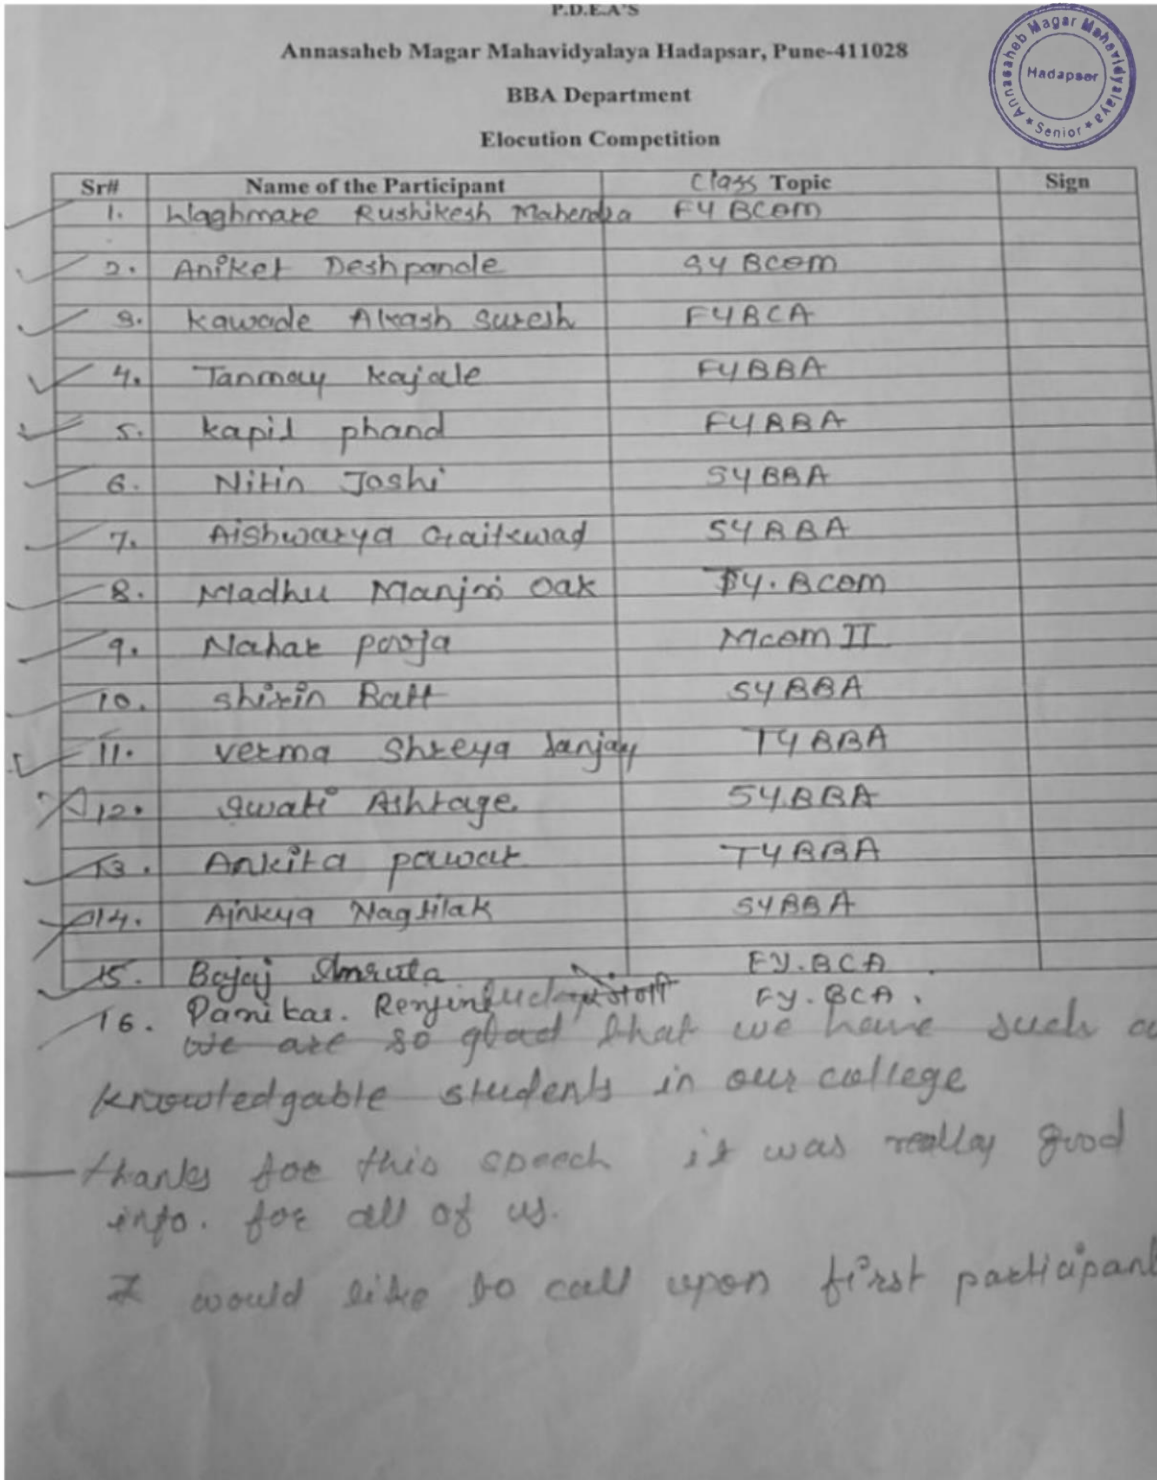 P.D.E.A'S
Annasaheb Magar Mahavidyalaya Hadapsar, Pune-411028
BBA Department
Elocution Competition
Annasaheb Magar Mahavidyalaya
Hadapser
★ Senior ★
Sr# Name of the Participant Class Topic Sign
1. Waghmare Rushikesh Mahendra FY BCOM
2. Aniket Deshpande SY BCOM
3. Kawade Akash Suresh FYBCA
4. Tanmay Kajale FYBBA
5. Kapil phand FYBBA
6. Nitin Joshi SYBBA
7. Aishwarya Gaikwad SYBBA
8. Madhu Manjiri Oak TY. BCOM
9. Nahar pooja MCOM II
10. Shirin Batt SYBBA
11. Verma Shreya Sanjay TYBBA
12. Swati Ashtage SYBBA
13. Ankita pawar TYBBA
14. Ajnkya Nagtilak SYBBA
15. Bajaj Amruta FY.BCA
16. Panikar. FY.BCA.
We are so glad that we have such a
knowledgable students in our college
thanks for this speech it was really good
info. for all of us.
I would like to call upon first participant